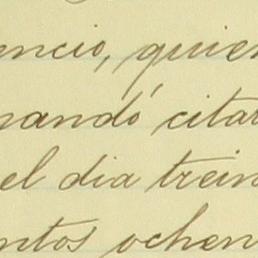 encio, quien
mandó citar
el dia trein
ntos ochen